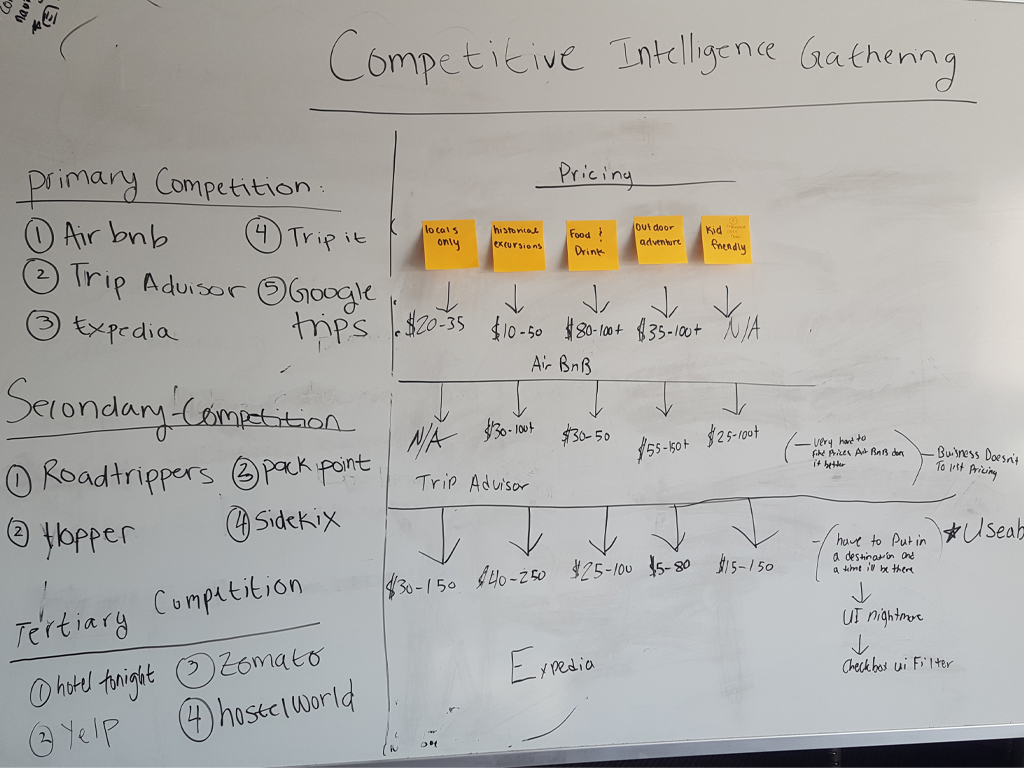 Competitive Intelligence Gathering
primary Competition:
① Air bnb
② Trip Advisor
③ Expedia
④ Trip it
⑤ Google
trips
Secondary Competition
① Roadtrippers
② Hopper
③ pack point
④ Sidekix
Tertiary Competition
① hotel tonight
② Yelp
③ Zomato
④ hostelworld
Pricing
locals
only
historical
excursions
Food &
Drink
outdoor
adventure
Kid
friendly
$20-35 $10-50 $80-100+ $35-100+ N/A
Air BnB
N/A $30-100+ $30-50 $55-150+ $25-100+
Trip Advisor
very hard to
Prices Air BnB
it better
Buisness Doesn't
To list Pricing
$30-150 $40-250 $25-100 $5-80 $15-150
Expedia
have to Put in
a destination and
a time ill be there
*Useab
UI nightmare
Checkbox ui Filter